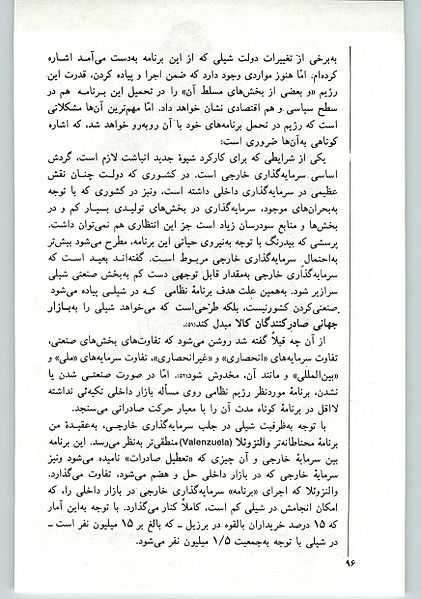 به‌برخی از تغییرات دولت شیلی که از این برنامه به‌دست می‌آمد اشاره
کرده‌ام. امّا هنوز مواردی وجود دارد که ضمن اجرا و پیاده کردن، قدرت این
رژیم «و بعضی از بخش‌های مسلط آن» را در تحمیل این برنامه هم در
سطح سیاسی و هم اقتصادی نشان خواهد داد. امّا مهم‌ترین آن‌ها مشکلاتی
است که رژیم در تحمل برنامه‌های خود با آن روبه‌رو خواهد شد، که اشاره
کوتاهی به‌آن‌ها ضروری است:
یکی از شرایطی که برای کارکرد شیوهٔ جدید انباشت لازم است، گردش
اساسی سرمایه‌گذاری خارجی است. در کشوری که دولت چنان نقش
عظیمی در سرمایه‌گذاری داخلی داشته است، ونیز در کشوری که با توجه
به‌بحران‌های موجود، سرمایه‌گذاری در بخش‌های تولیدی بسیار کم و در
بخش‌ها و منابع سودرسان زیاد است جز این انتظاری هم نمی‌توان داشت.
پرسشی که بیدرنگ با توجه به‌نیروی حیاتی این برنامه، مطرح می‌شود بیش‌تر
به‌احتمال سرمایه‌گذاری خارجی مربوط است. گفته‌اند بعید است که
سرمایه‌گذاری خارجی به‌مقدار قابل توجهی دست کم به‌بخش صنعتی شیلی
سرازیر شود. به‌همین علت هدف برنامهٔ نظامی که در شیلی پیاده می‌شود
صنعتی‌کردن کشورنیست، بلکه طرحی‌است که می‌خواهد شیلی را به‌بازار
جهانی صادرکنندگان کالا مبدل کند(۵۱).
از آن چه قبلاً گفته شد روشن می‌شود که تفاوت‌های بخش‌های صنعتی،
تفاوت سرمایه‌های «انحصاری» و «غیرانحصاری»، تفاوت سرمایه‌های «ملی» و
«بین‌المللی» و مانند آن، مخدوش شود(۵۲). امّا در صورت صنعتی شدن یا
نشدن، برنامهٔ موردنظر رژیم نظامی روی مسأله بازار داخلی تکیه‌ئی نداشته
لااقل در برنامهٔ کوتاه مدت آن را با معیار حرکت صادراتی می‌سنجد.
با توجه به‌ظرفیت شیلی در جلب سرمایه‌گذاری خارجی، به‌عقیدهٔ من
برنامهٔ محتاطانه‌تر والنزوئلا (Valenzuela) منطقی‌تر به‌نظر می‌رسد. این برنامه
بین سرمایهٔ خارجی و آن چیزی که «تعطیل صادرات» نامیده می‌شود ونیز
سرمایهٔ خارجی که در بازار داخلی حل و هضم می‌شود، تفاوت می‌گذارد.
والنزوئلا که اجرای «برنامه» سرمایه‌گذاری خارجی در بازار داخلی را، که
امکان انجامش در شیلی کم است، کاملاً کنار می‌گذارد. با توجه به‌این آمار
که ۱۵ درصد خریداران بالقوه در برزیل ــ که بالغ بر ۱۵ میلیون نفر است ــ
در شیلی با توجه به‌جمعیت ۱/۵ میلیون نفر می‌شود.
۹۶